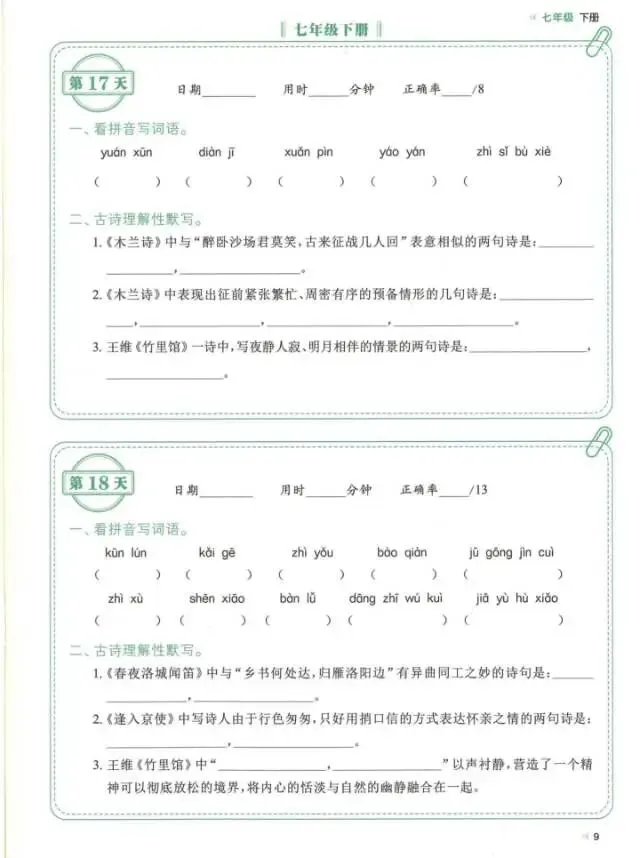 七年级 下册
七年级下册
第17天
日期______ 用时______分钟 正确率____/8
一、看拼音写词语。
yuán xūn diàn jī xuǎn pìn yáo yán zhì sǐ bù xiè
( ) ( ) ( ) ( ) ( )
二、古诗理解性默写。
1.《木兰诗》中与“醉卧沙场君莫笑,古来征战几人回”表意相似的两句诗是:______
__________,__________。
2.《木兰诗》中表现出征前紧张繁忙、周密有序的预备情形的几句诗是:__________
___,__________,__________,__________。
3. 王维《竹里馆》一诗中,写夜静人寂、明月相伴的情景的两句诗是:__________,
__________。
第18天
日期______ 用时______分钟 正确率____/13
一、看拼音写词语。
kūn lún kǎi gē zhì yǒu bào qiàn jū gōng jìn cuì
( ) ( ) ( ) ( ) ( )
zhì xù shēn xiāo bàn lǚ dāng zhī wú kuì jiā yù hù xiǎo
( ) ( ) ( ) ( ) ( )
二、古诗理解性默写。
1.《春夜洛城闻笛》中与“乡书何处达,归雁洛阳边”有异曲同工之妙的诗句是:_____
__________,__________。
2.《逢入京使》中写诗人由于行色匆匆,只好用捎口信的方式表达怀亲之情的两句诗是:
__________,__________。
3. 王维《竹里馆》中“__________,__________”以声衬静,营造了一个精
神可以彻底放松的境界,将内心的恬淡与自然的幽静融合在一起。
9